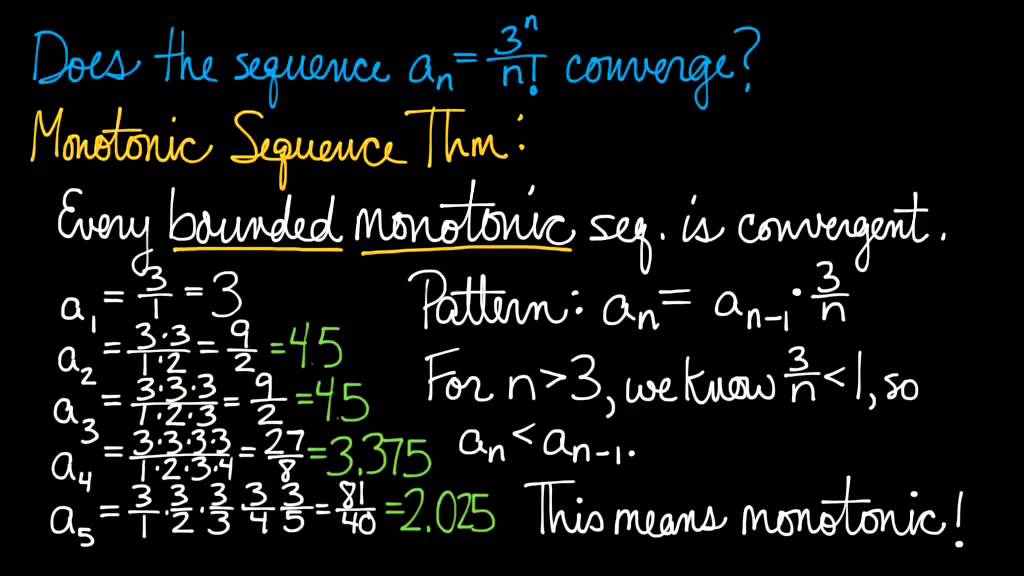 Does the sequence aₙ = 3ⁿ/n! converge?
Monotonic Sequence Thm:
Every bounded monotonic seq. is convergent.
a₁ = 3/1 = 3
a₂ = 3·3/1·2 = 9/2 = 4.5
a₃ = 3·3·3/1·2·3 = 9/2 = 4.5
a₄ = 3·3·3·3/1·2·3·4 = 27/8 = 3.375
a₅ = 3/1 · 3/2 · 3/3 · 3/4 · 3/5 = 81/40 = 2.025
Pattern: aₙ = aₙ₋₁ · 3/n
For n > 3, we know 3/n < 1, so
aₙ < aₙ₋₁.
This means monotonic!